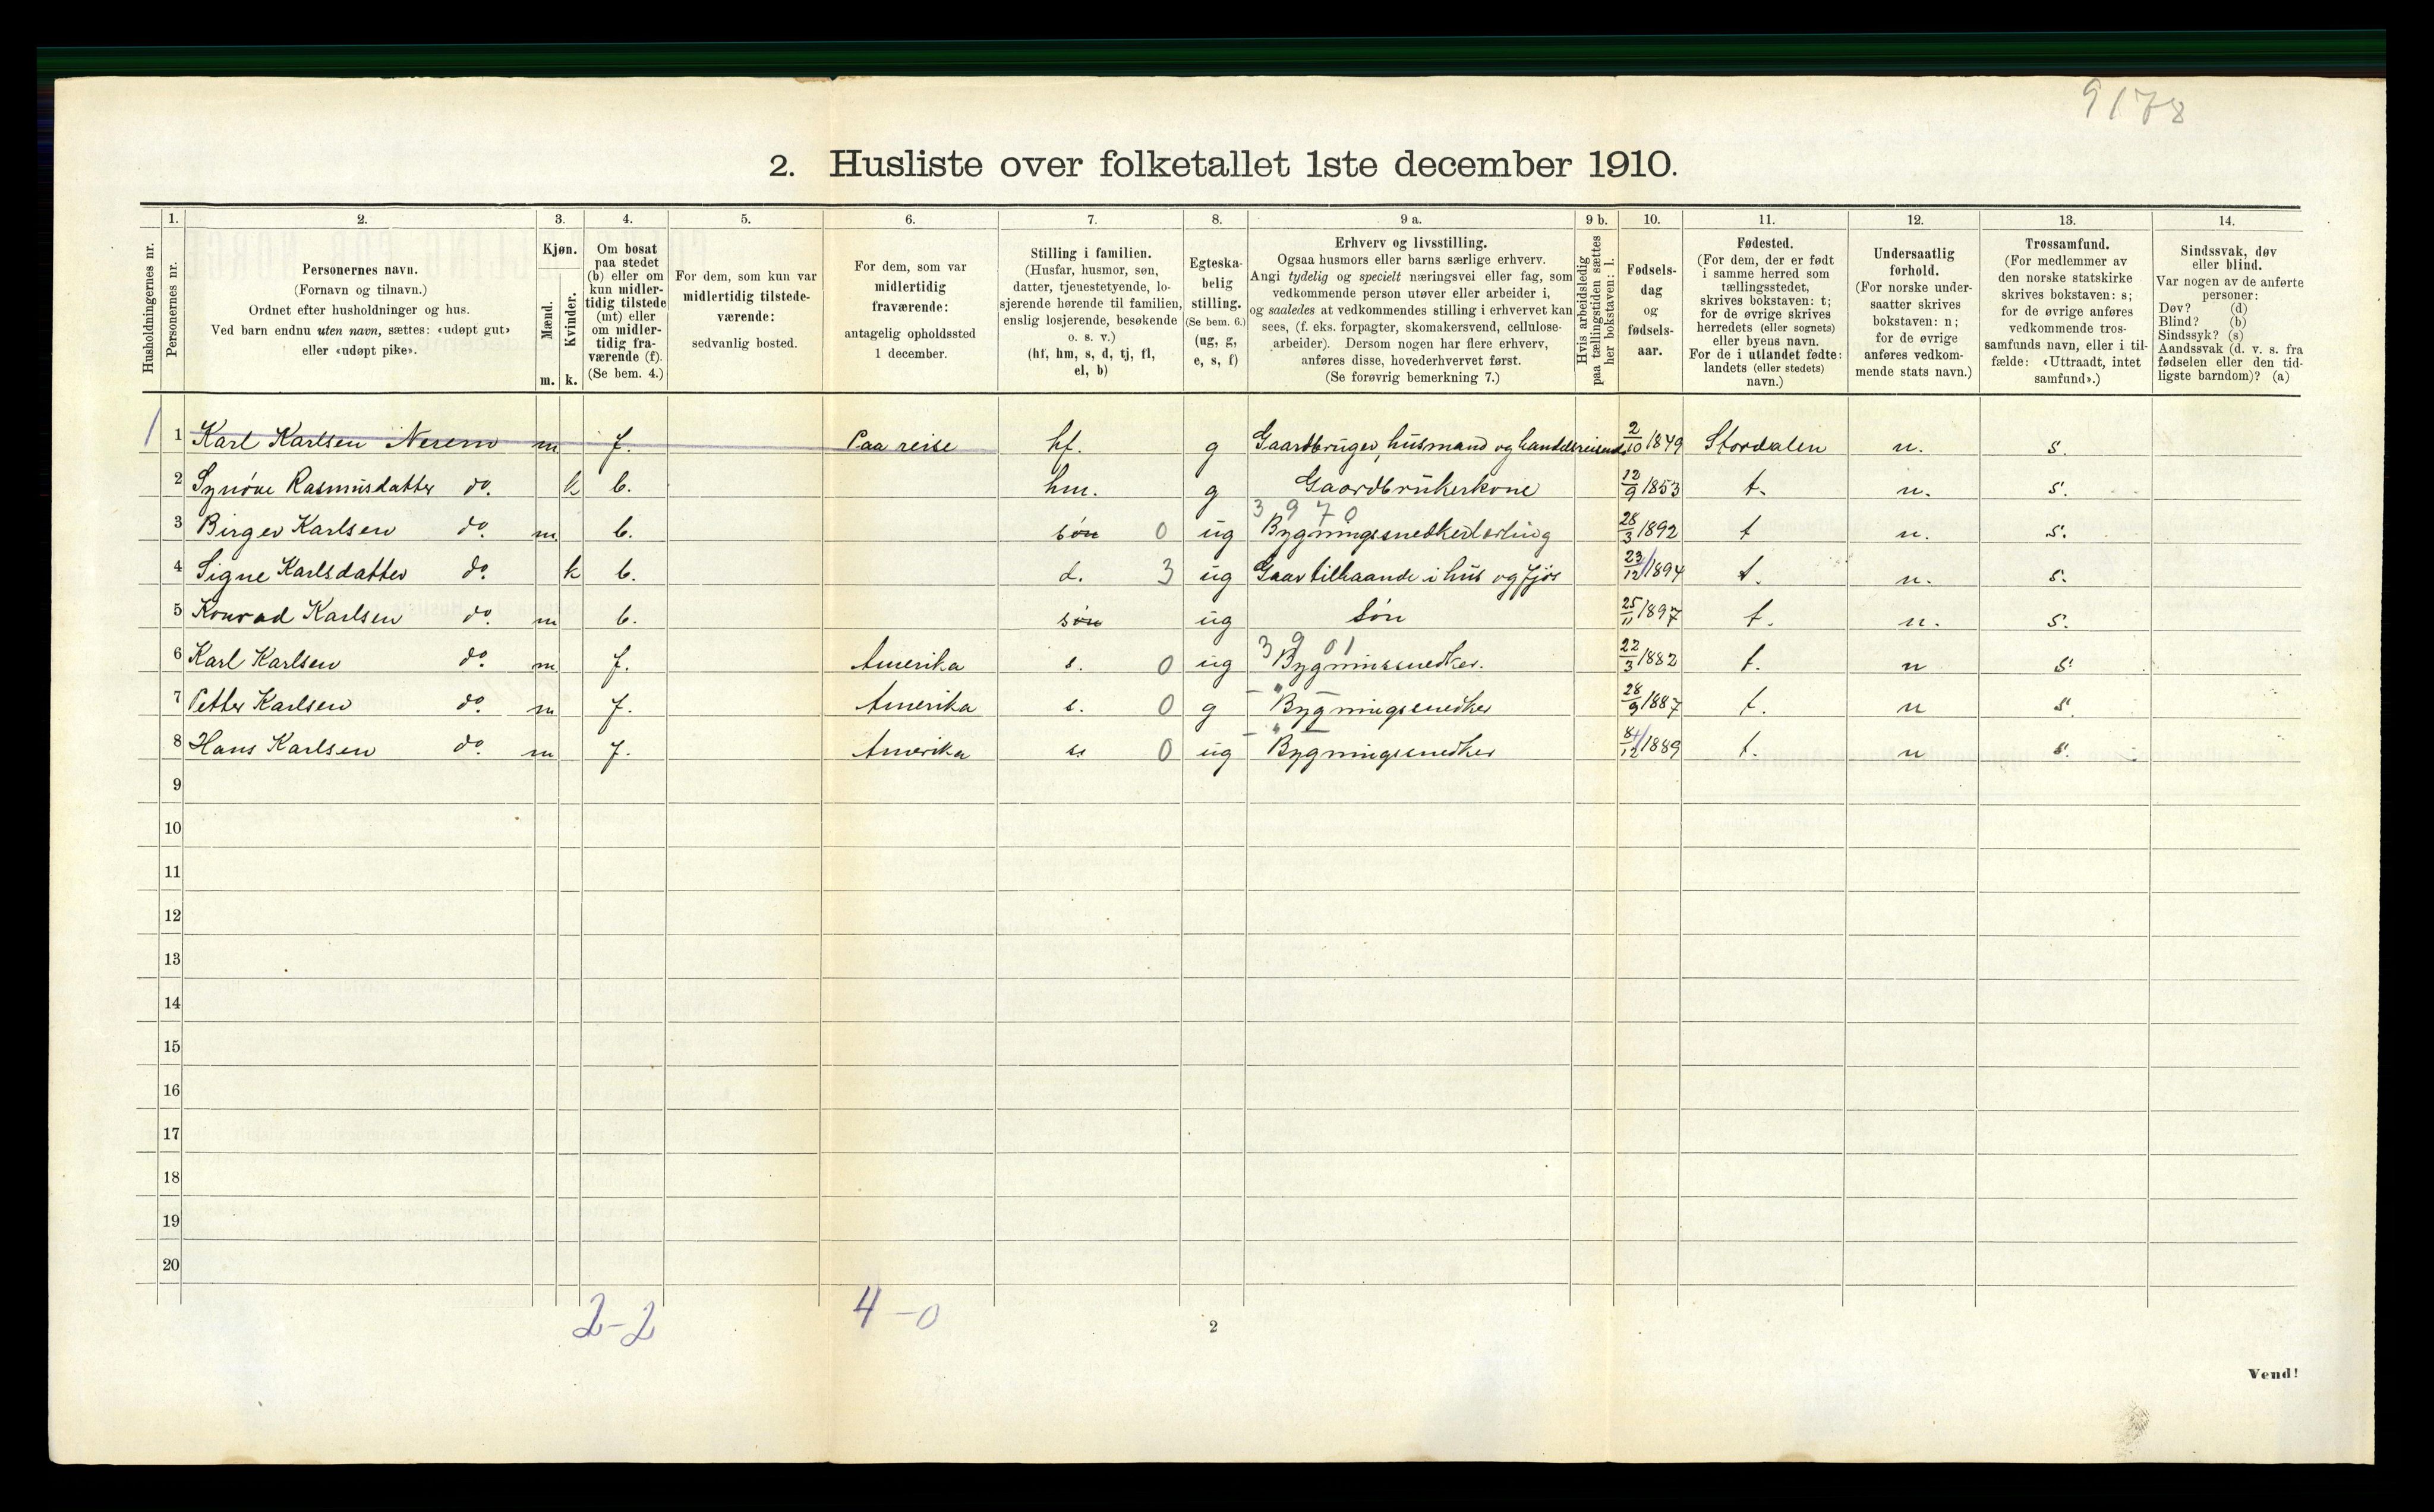 9178
2. Husliste over folketallet 1ste december 1910.
1. 2. 3. 4. 5. 6. 7. 8. 9 a. 9 b. 10. 11. 12. 13. 14.
Husholdningernes nr.
Personernes nr.
Personernes navn.
(Fornavn og tilnavn.)
Ordnet efter husholdninger og hus.
Ved barn endnu uten navn, sættes: «udøpt gut»
eller «udøpt pike».
Kjøn.
Mænd.
Kvinder.
m. k.
Om bosat
paa stedet
(b) eller om
kun midler-
tidig tilstede
(mt) eller
om midler-
tidig fra-
værende (f).
(Se bem. 4.)
For dem, som kun var
midlertidig tilstede-
værende:
sedvanlig bosted.
For dem, som var
midlertidig
fraværende:
antagelig opholdssted
1 december.
Stilling i familien.
(Husfar, husmor, søn,
datter, tjenestetyende, lo-
sjerende hørende til familien,
enslig losjerende, besøkende
o. s. v.)
(hf, hm, s, d, tj, fl,
el, b)
Egteska-
belig
stilling.
(Se bem. 6.)
(ug, g,
e, s, f)
Erhverv og livsstilling.
Ogsaa husmors eller barns særlige erhverv.
Angi tydelig og specielt næringsvei eller fag, som
vedkommende person utøver eller arbeider i,
og saaledes at vedkommendes stilling i erhvervet kan
sees, (f. eks. forpagter, skomakersvend, cellulose-
arbeider). Dersom nogen har flere erhverv,
anføres disse, hovederhvervet først.
(Se forøvrig bemerkning 7.)
Hvis arbeidsledig
paa tællingstiden sættes
her bokstaven: l.
Fødsels-
dag
og
fødsels-
aar.
Fødested.
(For dem, der er født
i samme herred som
tællingsstedet,
skrives bokstaven: t;
for de øvrige skrives
herredets (eller sognets)
eller byens navn.
For de i utlandet fødte:
landets (eller stedets)
navn.)
Undersaatlig
forhold.
(For norske under-
saatter skrives
bokstaven: n;
for de øvrige
anføres vedkom-
mende stats navn.)
Trossamfund.
(For medlemmer av
den norske statskirke
skrives bokstaven: s;
for de øvrige anføres
vedkommende tros-
samfunds navn, eller i til-
fælde: «Uttraadt, intet
samfund».)
Sindssvak, døv
eller blind.
Var nogen av de anførte
personer:
Døv? (d)
Blind? (b)
Sindssyk? (s)
Aandssvak (d. v. s. fra
fødselen eller den tid-
ligste barndom)? (a)
1 1 Karl Karlsen Nerem m f. Paa reise hf. g Gaardbruger, husmand og handelsreisende 2/10 1849 Stordalen n. s.
2 Synøve Rasmusdatter do. k b. hm. g Gaardbrukerkone 12/9 1853 t. n. s.
3 9 7 0
3 Birger Karlsen do. m b. søn 0 ug Bygningssnedkerlærling 28/3 1892 t n. s.
4 Signe Karlsdatter do. k b. d. 3 ug Gaar tilhaande i hus og fjøs 23/12 1894 t. n. s.
5 Konrad Karlsen do. m b. søn ug søn 25/11 1897 t. n. s.
3 9 0 1
6 Karl Karlsen do. m f. Amerika s. 0 ug Bygninssnedker. 22/3 1882 t. n s.
– " –
7 Petter Karlsen do. m f. Amerika s. 0 g Bygningssnedker 28/9 1887 t. n s.
– " –
8 Hans Karlsen do. m f. Amerika s. 0 ug Bygningssnedker /12 1889 t. n s.
9
10
11
12
13
14
15
16
17
18
19
20
2-2 4-0
2
Vend!